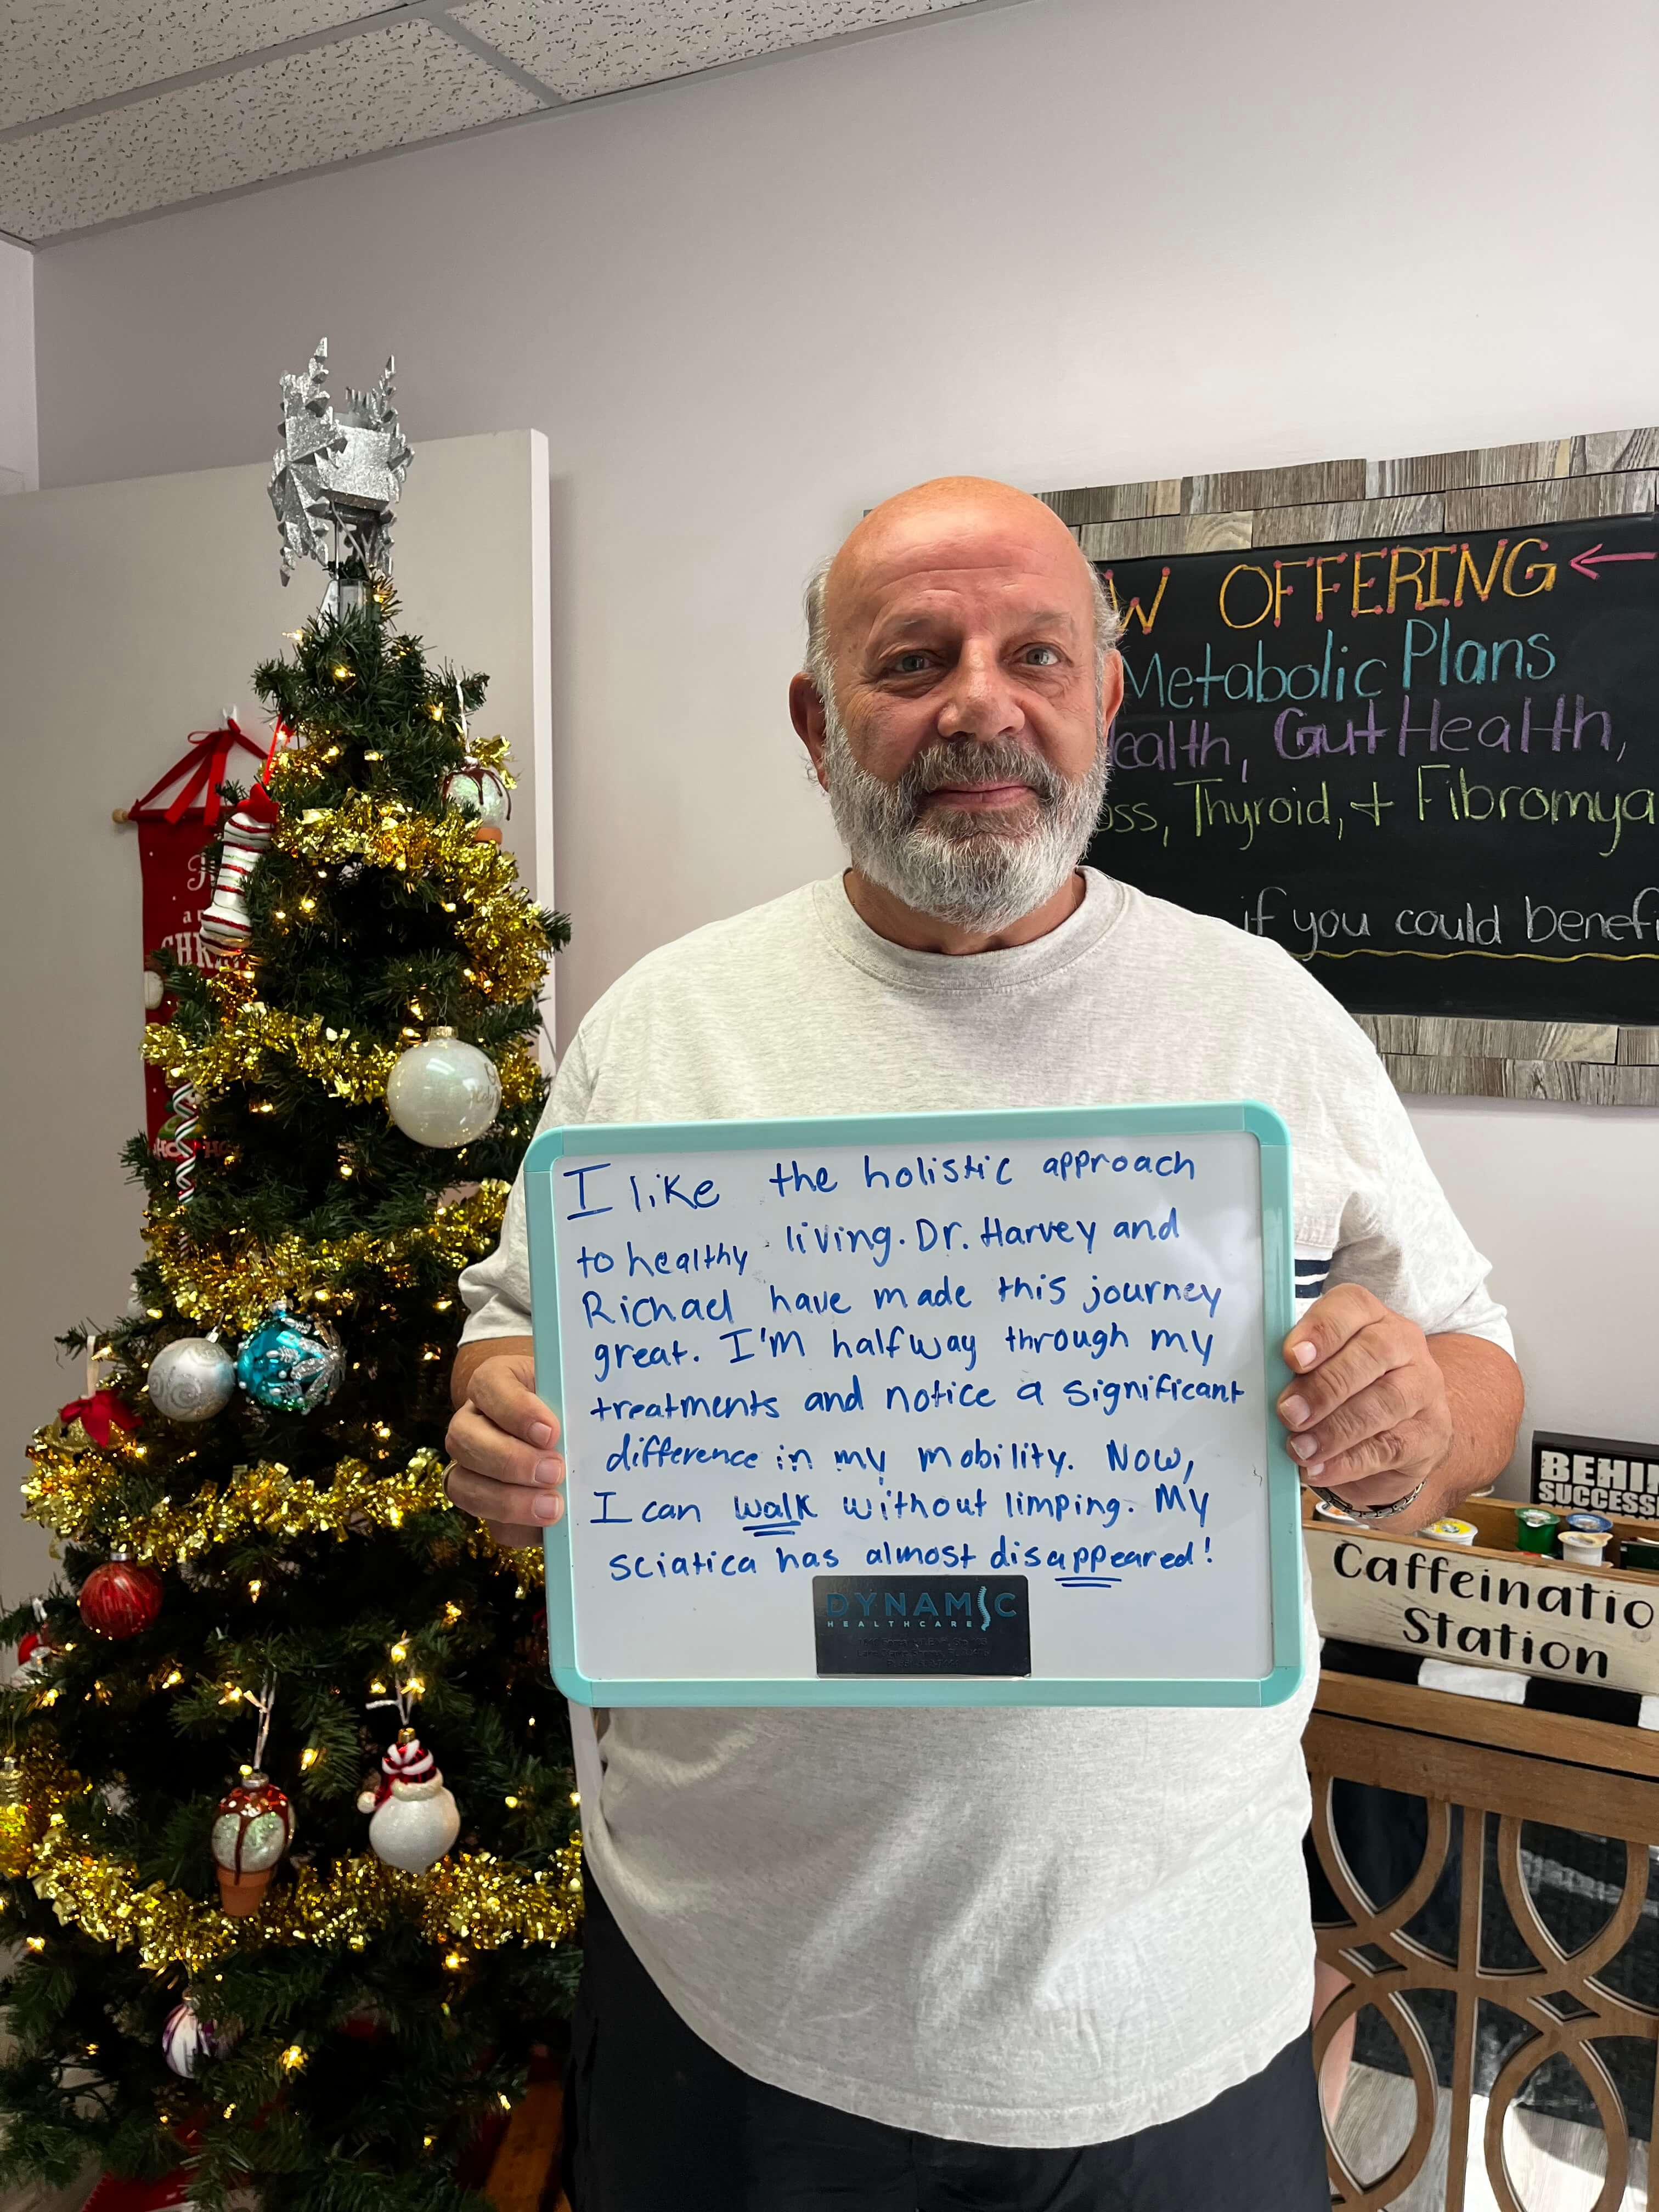 W OFFERING
Metabolic Plans
ealth, Gut Health,
oss, Thyroid, + Fibromya
if you could benefi
I like the holistic approach
to healthy living. Dr. Harvey and
Richael have made this journey
great. I'm halfway through my
treatments and notice a significant
difference in my mobility. Now,
I can walk without limping. My
sciatica has almost disappeared!
DYNAMIC
HEALTHCARE
BEHIN
SUCCESS
Caffeinatio
Station